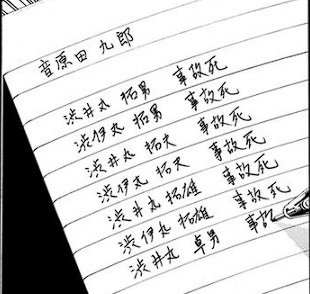 音原田九郎
渋井丸 拓男 事故死
渋伊丸 拓男 事故死
渋井丸 拓夫 事故死
渋伊丸 拓夫 事故死
渋井丸 拓雄 事故死
渋伊丸 拓雄 事故死
渋井丸 卓男 事故